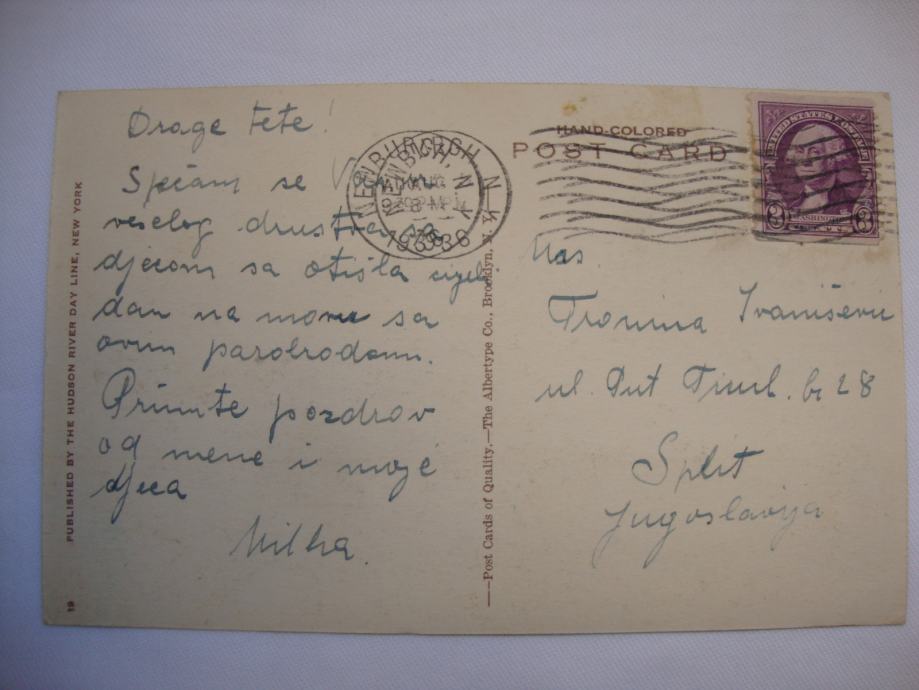 Drage tete!
Sjećam se V
veselog drustva sa
djecom sa otišla cijeli
dan na more sa
ovim parobrodom.
Primite pozdrav
od mene i moje
djeca
Milka.
PUBLISHED BY THE HUDSON RIVER DAY LINE, NEW YORK
19
—Post Cards of Quality.—The Albertype Co., Brooklyn, N. Y.
NEWBURGH N.Y.
AUG
8 PM
1936
HAND-COLORED
POST CARD
UNITED STATES POSTAGE
3 WASHINGTON 3
Ivanišević
ul. Put br 28
Split
Jugoslavija